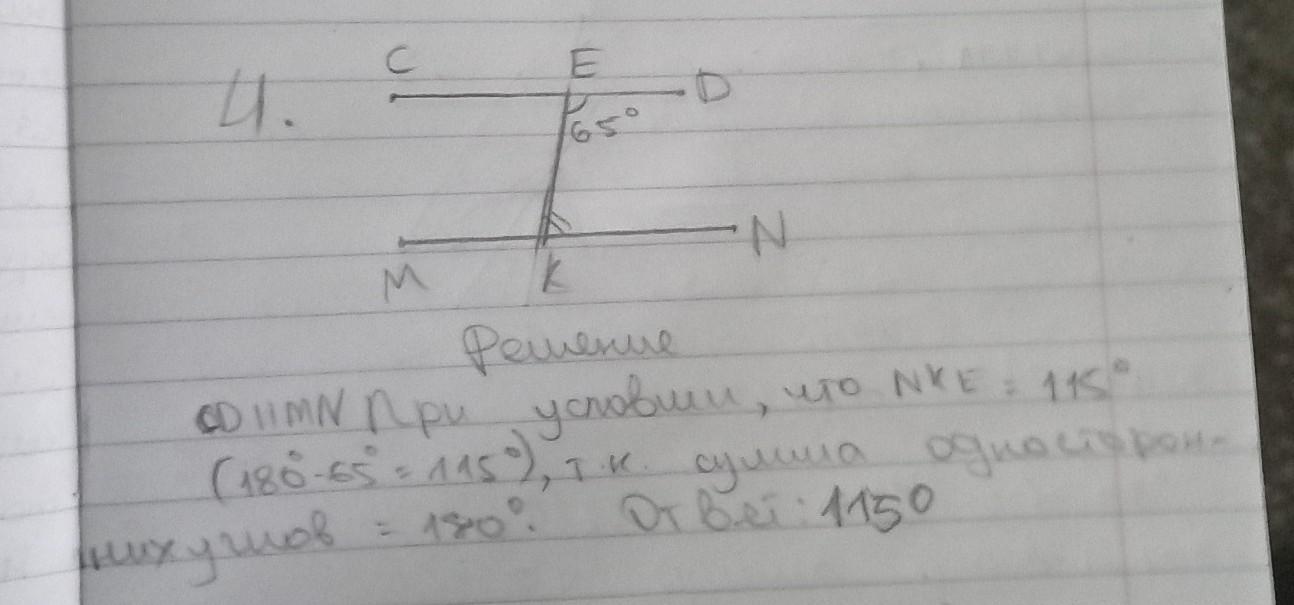 C E D
4.
65°
M K N
Решение
CD || MN При условии, что NKE = 115°
(180°-65° = 115°), т.к. сумма односторон-
них углов = 180°. Ответ: 115°